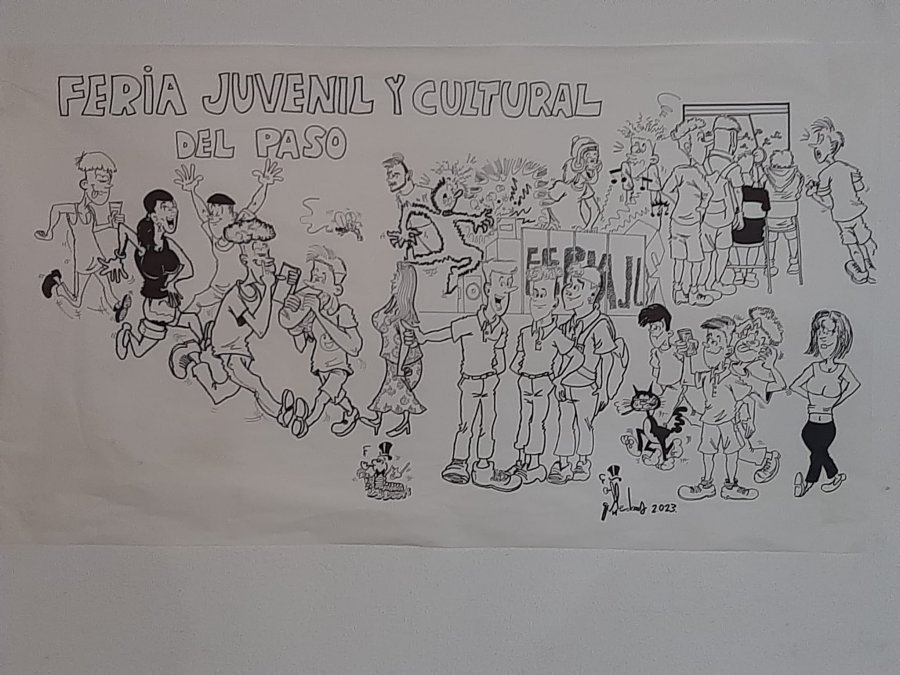 FERIA JUVENIL Y CULTURAL
DEL PASO
FERIAJU
2023